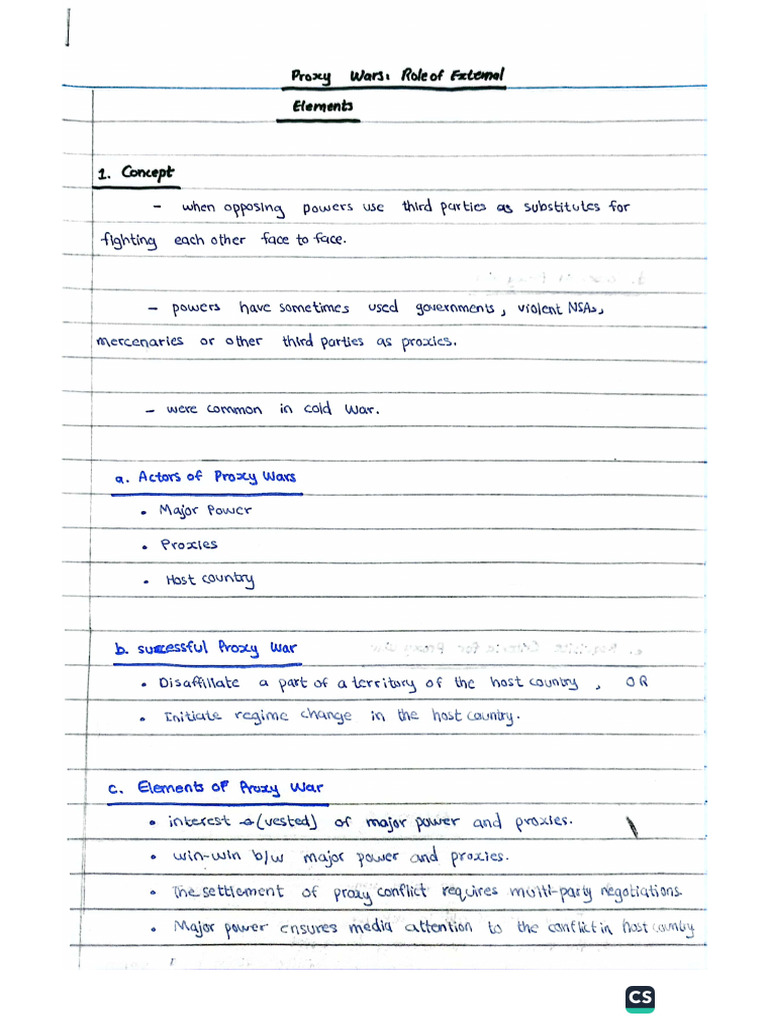 Proxy Wars: Role of External
Elements
1. Concept
- when opposing powers use third parties as substitutes for
fighting each other face to face.
- powers have sometimes used governments, violent NSAs,
mercenaries or other third parties as proxies.
- were common in cold war.
a. Actors of Proxy Wars
• Major Power
• Proxies
• Host country
b. successful Proxy War
• Disaffillate a part of a territory of the host country, OR
• Initiate regime change in the host country.
c. Elements of Proxy War
• interest → (vested) of major power and proxies.
• win-win b/w major power and proxies.
• The settlement of proxy conflict requires multi-party negotiations.
• Major power ensures media attention to the conflict in host country
CS